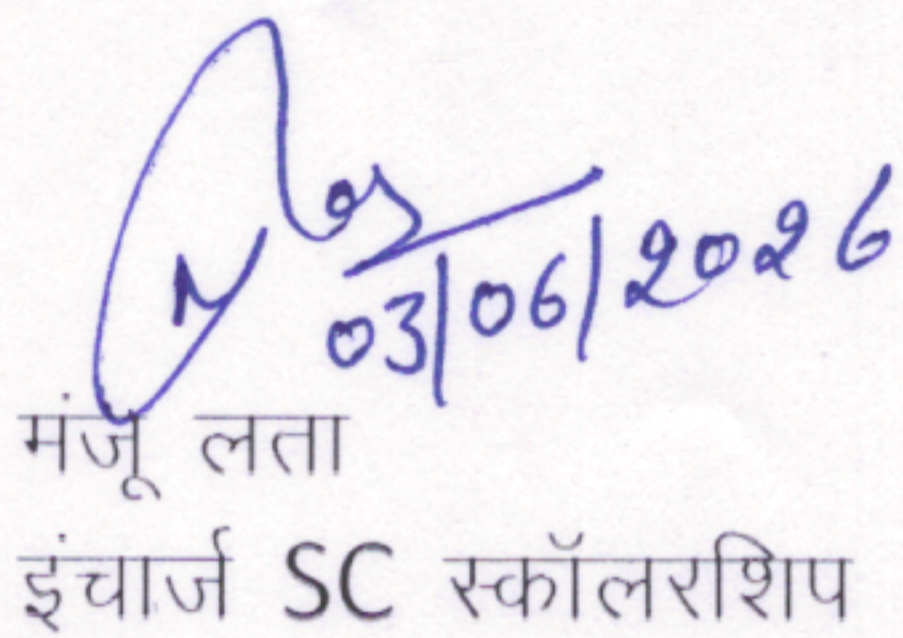 03/06/2026
मंजू लता
इंचार्ज SC स्कॉलरशिप